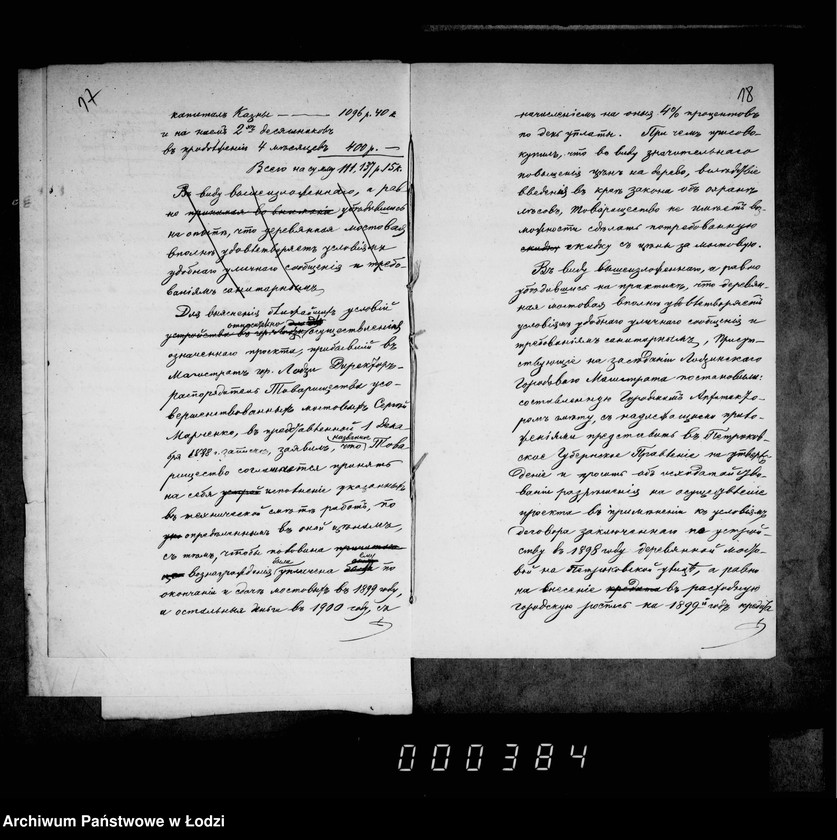 17
капиталъ Казны —— 1096 р. 40 к
и на наемъ 2ухъ десятниковъ
въ продолженіи 4 мѣсяцевъ 400 р. —
Всего на сумму 111,137 р 15 к.
Въ виду вышеизложеннаго, а рав
но принимая во вниманіе убѣдившись
на опытѣ, что деревянная мостовая
вполнѣ удовлетворяетъ условіямъ
удобнаго уличнаго сообщенія и требо-
ваніямъ санитарнымъ,
Для выясненія ближайшихъ условій
относительно
устройства осуществленія
означеннаго проекта, прибывшій въ
Магистратъ гор. Лодзи Директоръ-
распорядитель Товарищества усо-
вершенствованныхъ мостовыхъ Сергѣй
Марченко, въ представленной 1 Дека
бря 1898 г. запискѣ, заявилъ, что названное Това
рищество соглашается принять
на себя исполненіе указанныхъ
въ технической смѣтѣ работъ, по
опредѣленнымъ въ оной цѣнамъ,
съ тѣмъ, чтобы половина
вознагражденія была уплачена ему по
окончаніи и сдачѣ мостовыхъ въ 1899 году,
а остальныя деньги въ 1900 году, съ
18
начисленіемъ на оныя 4% процентовъ
по день уплаты. При чемъ присово-
купилъ, что въ виду значительнаго
повышенія цѣнъ на дерево, вслѣдствіе
введенія въ край закона объ охранѣ
лѣсовъ, Товарищество не имѣетъ воз-
можности сдѣлать потребованную
скидку скидку съ цѣны за мостовую.
Въ виду вышеизложеннаго, а равно
убѣдившись на практикѣ, что деревян-
ная мостовая вполнѣ удовлетворяетъ
условіямъ удобнаго уличнаго сообщенія и
требованіямъ санитарнымъ, Присут-
ствующіе на засѣданіи Лодзинскаго
Городоваго Магистрата постановили:
составленную Городскимъ Архитекто-
ромъ смѣту, съ надлежащими прило-
женіями представить въ Петроков-
ское Губернское Правленіе на утверж-
деніе и просить объ исходатайство-
ваніи разрѣшенія на осуществленіе
проекта въ примѣненіи къ условіямъ
договора заключеннаго по устрой-
ству въ 1898 году деревянной мосто-
вой на Петроковской улицѣ, а равно
на внесеніе въ расходную
городскую роспись на 1899й годъ
000384
Archiwum Państwowe w Łodzi